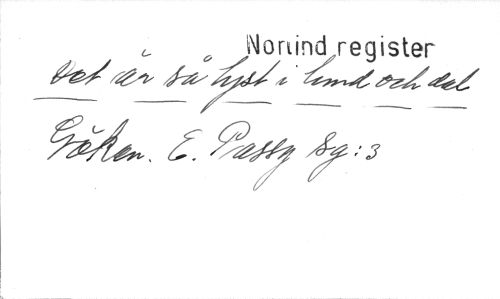 Norlind register
Det är så lyst i lund och dal
Göken. E. Passy Sg: 3